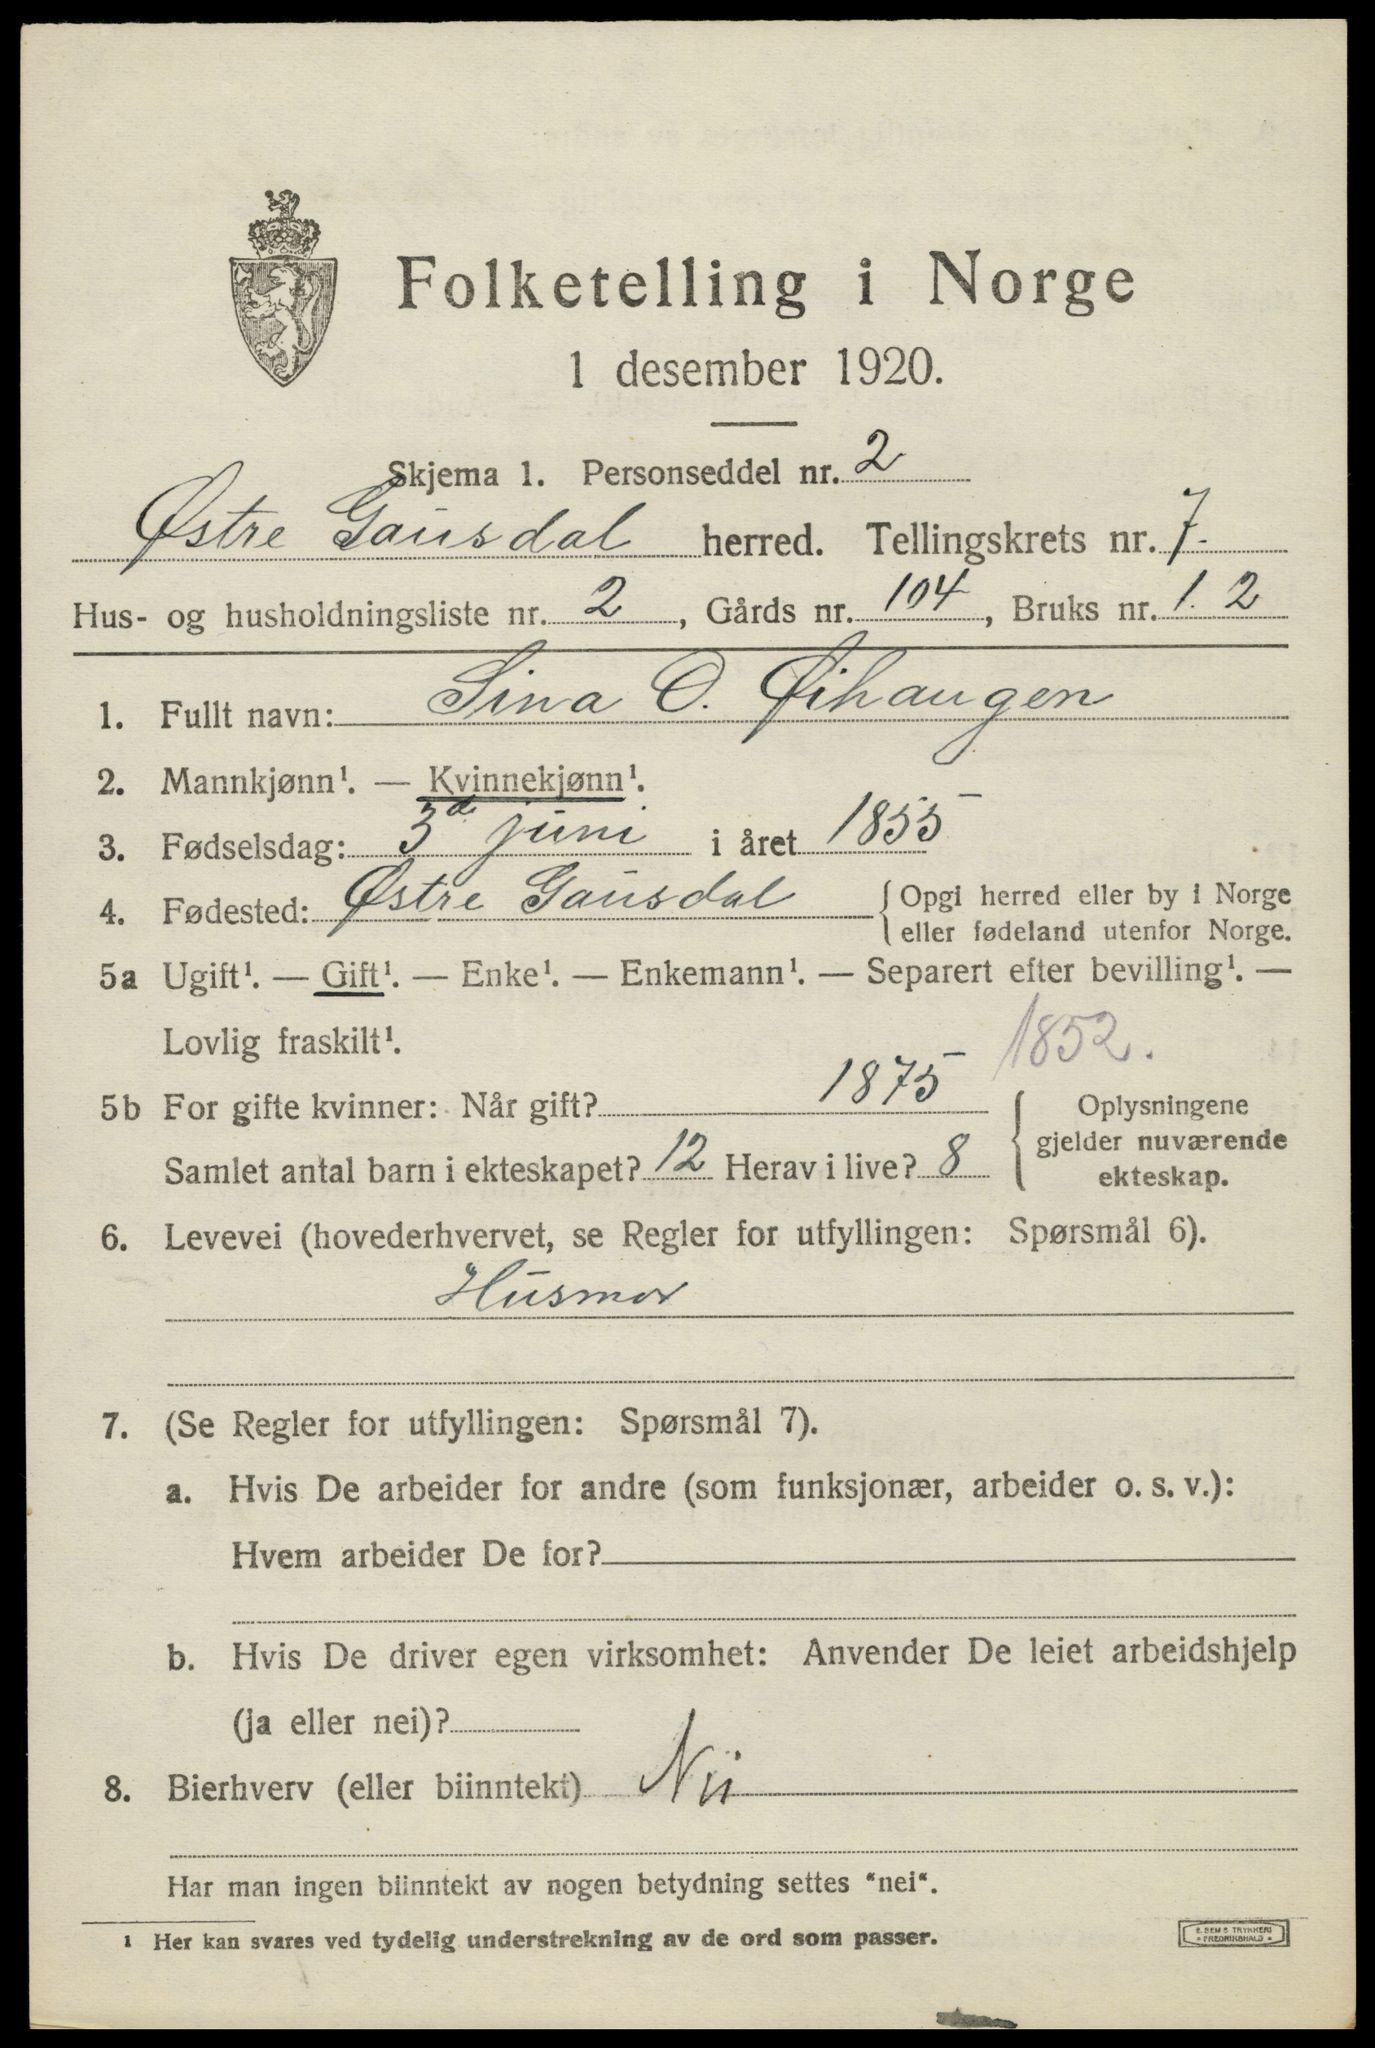 Folketelling i Norge
1 desember 1920.
Skjema 1. Personseddel nr. 2
Østre Gausdal herred. Tellingskrets nr. 7.
Hus- og husholdningsliste nr. 2, Gårds nr. 104, Bruks nr. 1. 2
1. Fullt navn: Sina O. Øihaugen
2. Mannkjønn¹. — Kvinnekjønn¹.
3. Fødselsdag: 3de juni i året 1855
4. Fødested: Østre Gausdal { Opgi herred eller by i Norge
eller fødeland utenfor Norge.
5a Ugift¹. — Gift¹. — Enke¹. — Enkemann¹. — Separert efter bevilling¹. —
Lovlig fraskilt¹.
1852.
5b For gifte kvinner: Når gift? 1875
Samlet antal barn i ekteskapet? 12 Herav i live? 8
{ Oplysningene
gjelder nuværende
ekteskap.
6. Levevei (hovederhvervet, se Regler for utfyllingen: Spørsmål 6).
Husmor
7. (Se Regler for utfyllingen: Spørsmål 7).
a. Hvis De arbeider for andre (som funksjonær, arbeider o. s. v.):
Hvem arbeider De for?
b. Hvis De driver egen virksomhet: Anvender De leiet arbeidshjelp
(ja eller nei)?
8. Bierhverv (eller biinntekt) Nei
Har man ingen biinntekt av nogen betydning settes "nei".
¹ Her kan svares ved tydelig understrekning av de ord som passer.
E. SEM'S TRYKKERI
• FREDRIKSHALD •